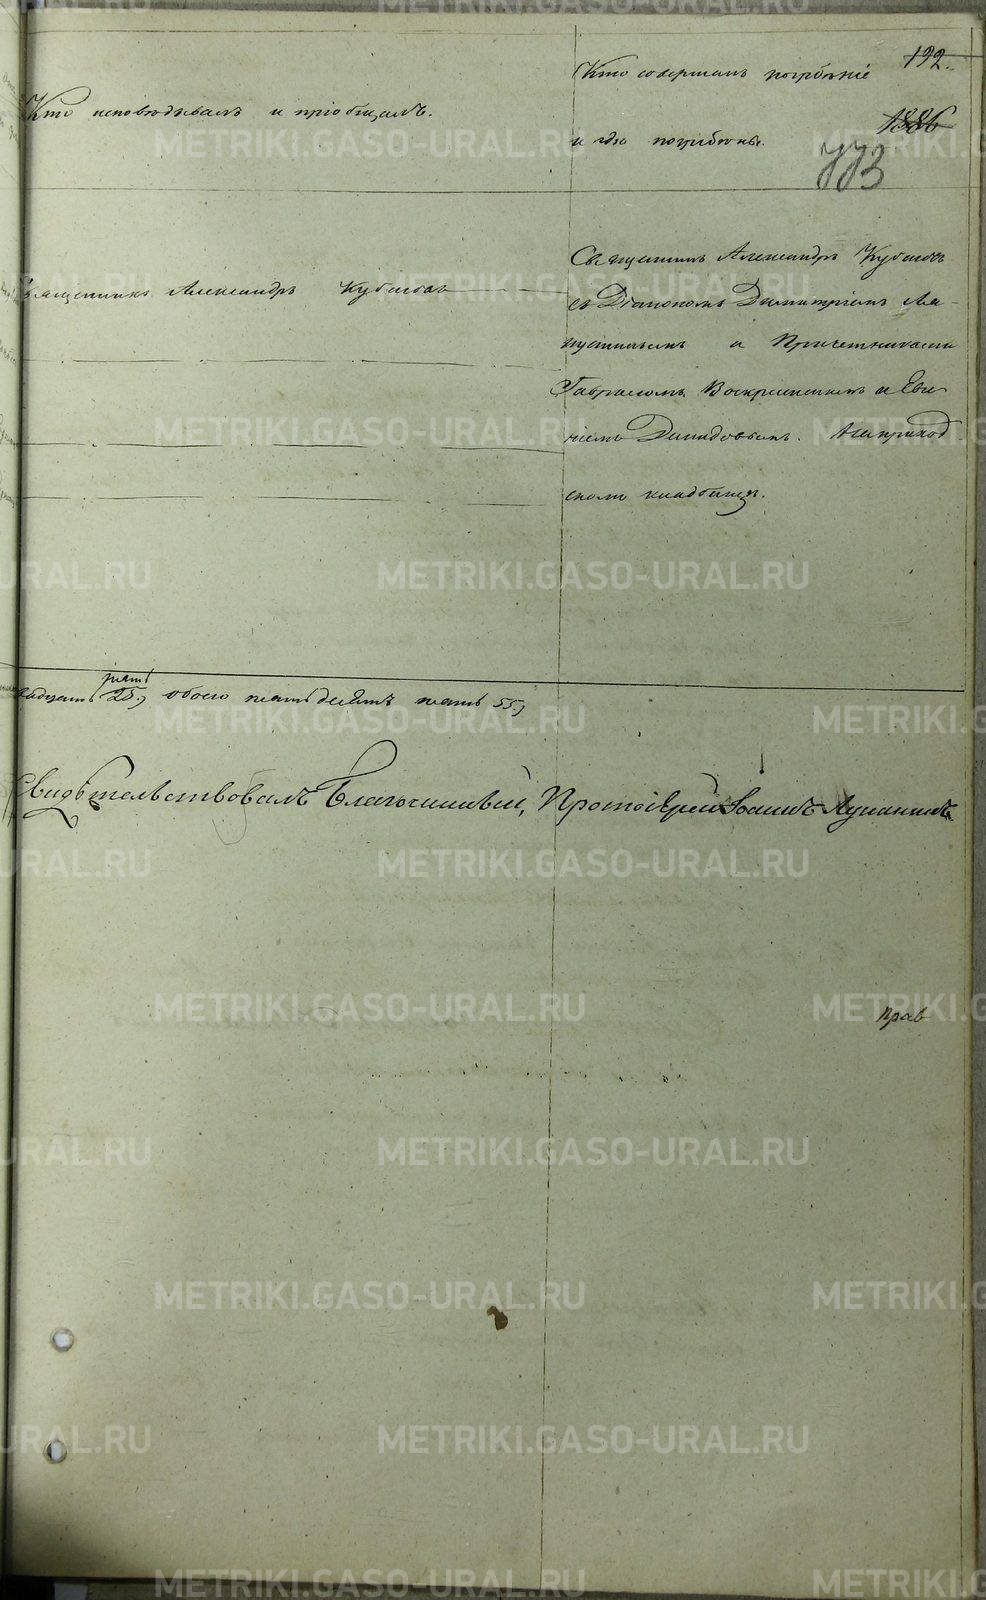 192.
Кто исповѣдывалъ и пріобщалъ.
Кто совершалъ погребеніе
и гдѣ погребены.
1886
773
Священникъ Александръ Кубасовъ
Священникъ Александръ Кубасовъ
съ Діакономъ Димитріемъ
и Причетниками
Гавріиломъ Воскресенскимъ и Евге-
ніемъ Давидовымъ. На приход
скомъ кладбищѣ.
пять
25, обоего пятьдесятъ пять 55,
Свидѣтельствовалъ Благочинный, Протоіерей Іоаннъ
прав
METRIKI.GASO-URAL.RU